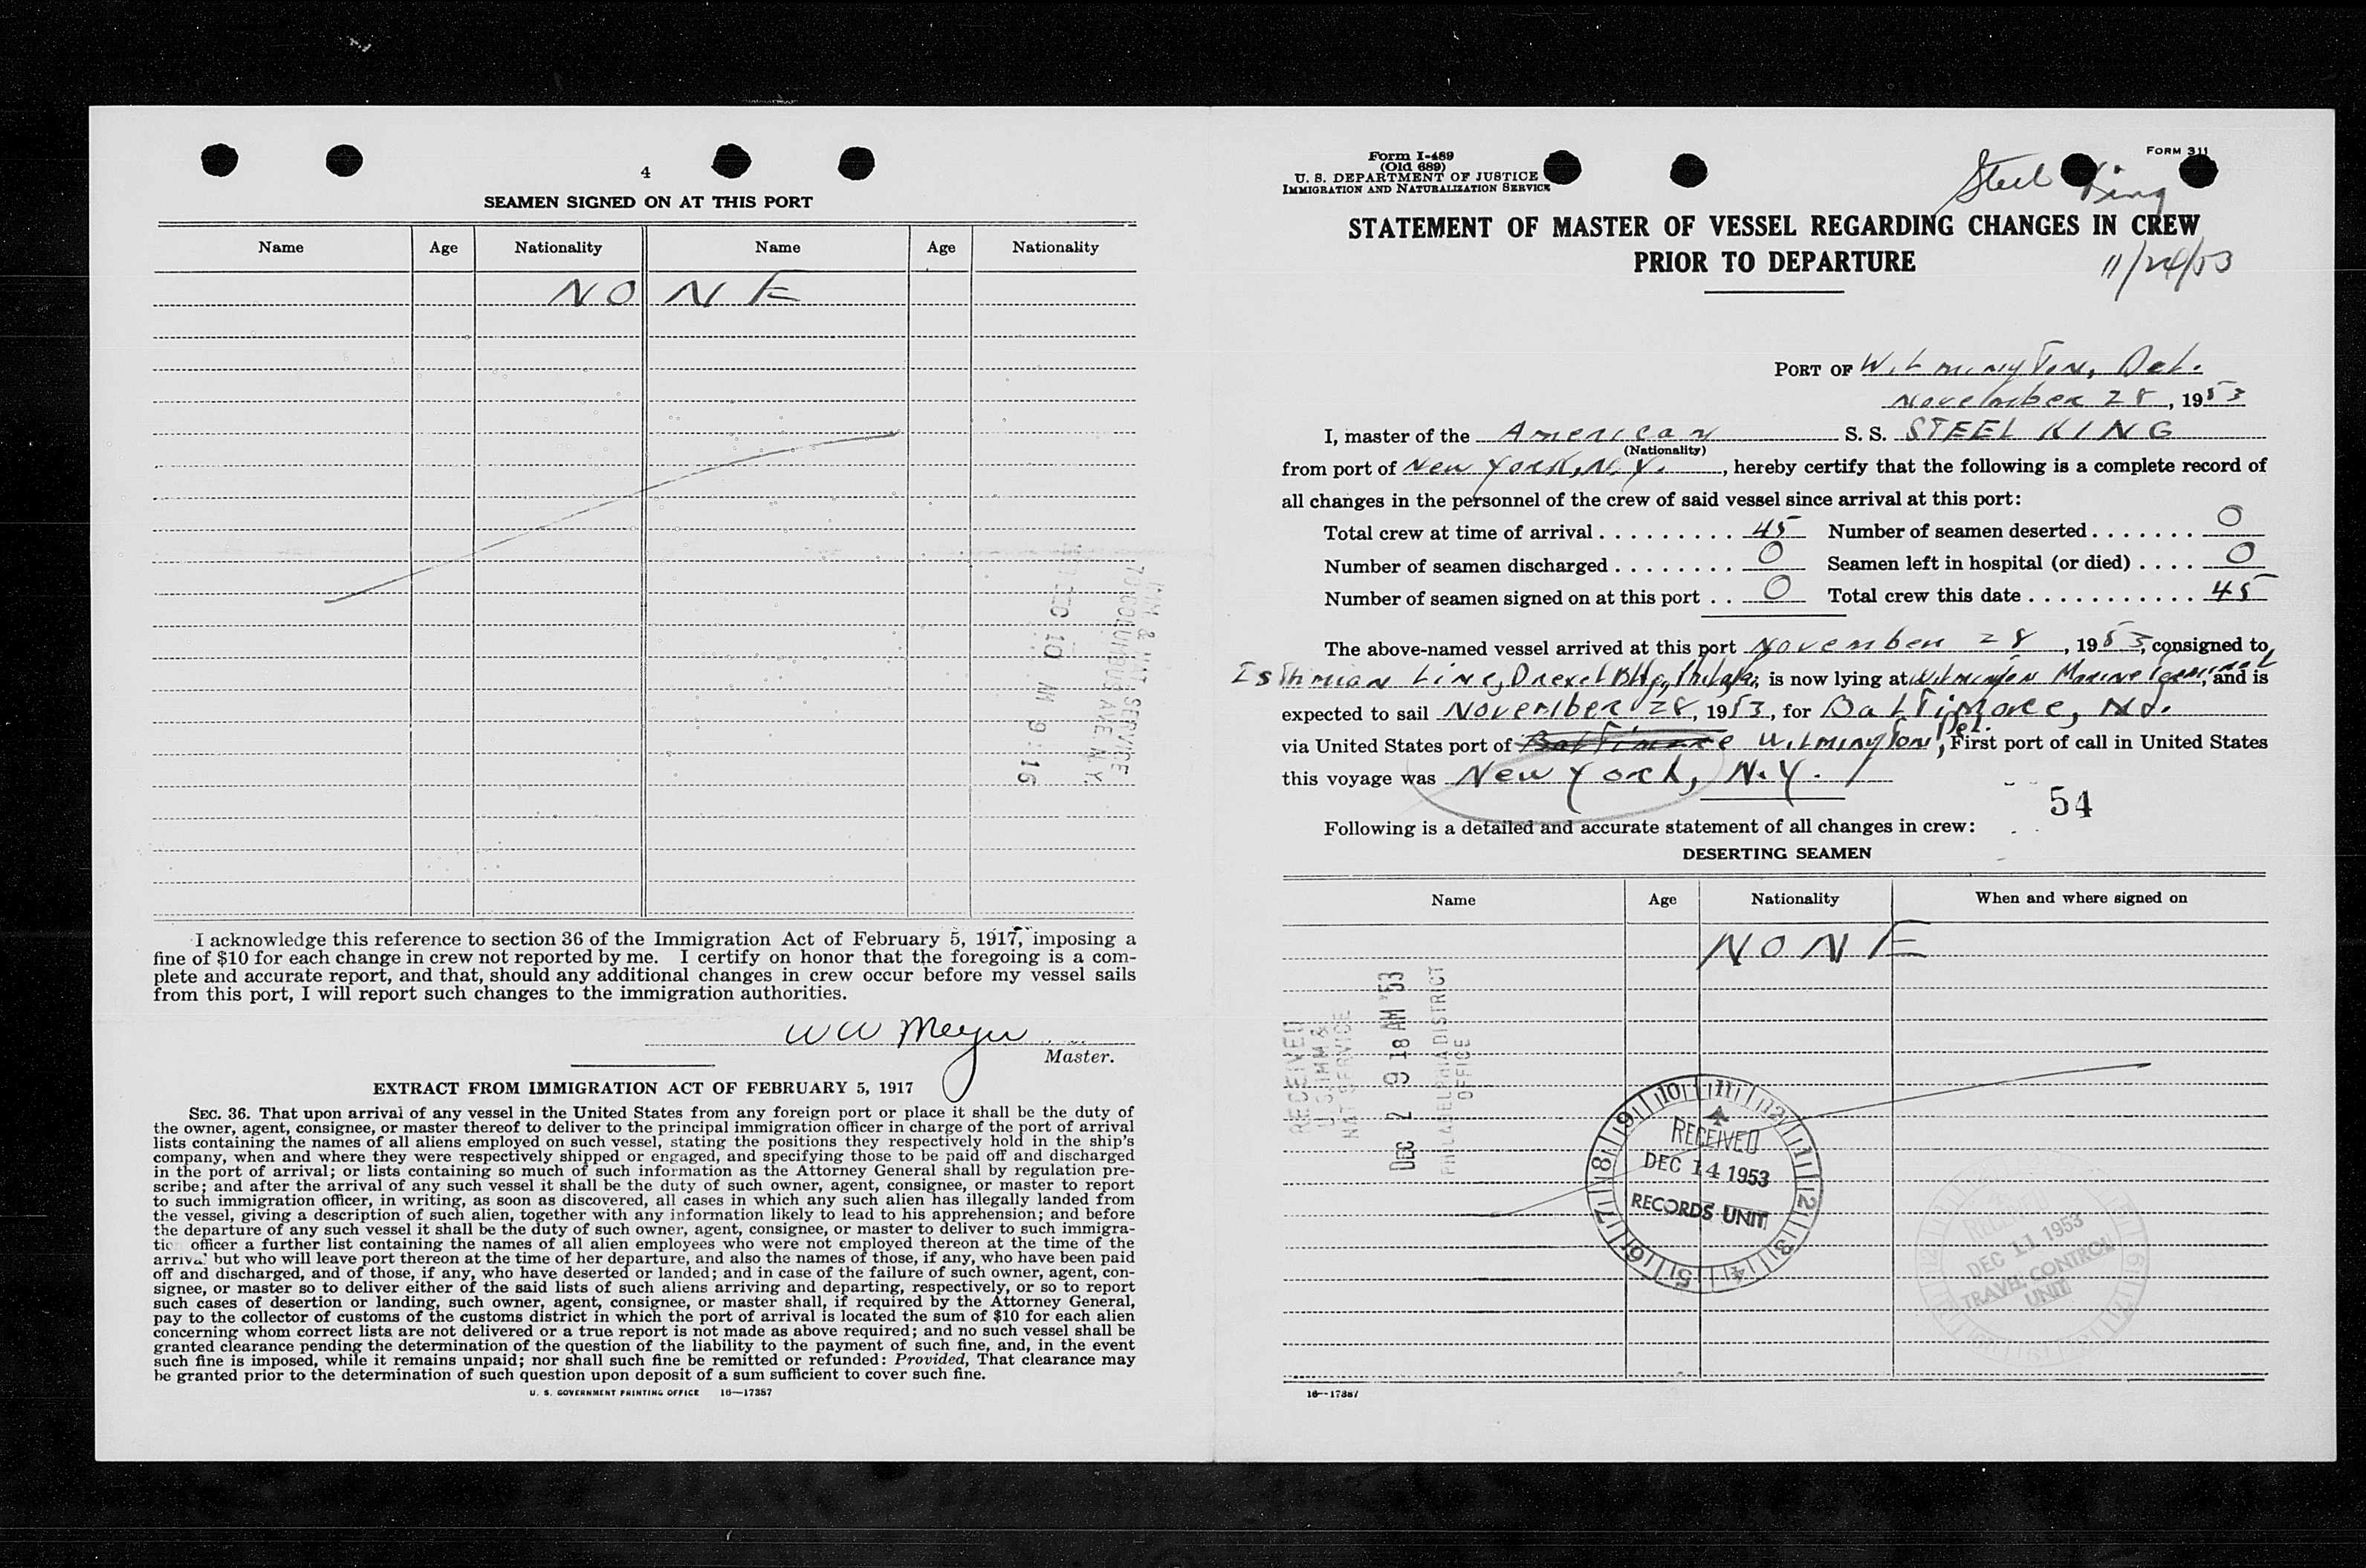 4
SEAMEN SIGNED ON AT THIS PORT
Name Age Nationality Name Age Nationality
NONE
IMM & NAT SERVICE
70 COLUMBUS AVE N.Y.
DEC 10 AM 9:16
I acknowledge this reference to section 36 of the Immigration Act of February 5, 1917, imposing a
fine of $10 for each change in crew not reported by me. I certify on honor that the foregoing is a com-
plete and accurate report, and that, should any additional changes in crew occur before my vessel sails
from this port, I will report such changes to the immigration authorities.
WW Meyer
Master.
EXTRACT FROM IMMIGRATION ACT OF FEBRUARY 5, 1917
SEC. 36. That upon arrival of any vessel in the United States from any foreign port or place it shall be the duty of
the owner, agent, consignee, or master thereof to deliver to the principal immigration officer in charge of the port of arrival
lists containing the names of all aliens employed on such vessel, stating the positions they respectively hold in the ship's
company, when and where they were respectively shipped or engaged, and specifying those to be paid off and discharged
in the port of arrival; or lists containing so much of such information as the Attorney General shall by regulation pre-
scribe; and after the arrival of any such vessel it shall be the duty of such owner, agent, consignee, or master to report
to such immigration officer, in writing, as soon as discovered, all cases in which any such alien has illegally landed from
the vessel, giving a description of such alien, together with any information likely to lead to his apprehension; and before
the departure of any such vessel it shall be the duty of such owner, agent, consignee, or master to deliver to such immigra-
tion officer a further list containing the names of all alien employees who were not employed thereon at the time of the
arrival but who will leave port thereon at the time of her departure, and also the names of those, if any, who have been paid
off and discharged, and of those, if any, who have deserted or landed; and in case of the failure of such owner, agent, con-
signee, or master so to deliver either of the said lists of such aliens arriving and departing, respectively, or so to report
such cases of desertion or landing, such owner, agent, consignee, or master shall, if required by the Attorney General,
pay to the collector of customs of the customs district in which the port of arrival is located the sum of $10 for each alien
concerning whom correct lists are not delivered or a true report is not made as above required; and no such vessel shall be
granted clearance pending the determination of the question of the liability to the payment of such fine, and, in the event
such fine is imposed, while it remains unpaid; nor shall such fine be remitted or refunded: Provided, That clearance may
be granted prior to the determination of such question upon deposit of a sum sufficient to cover such fine.
U. S. GOVERNMENT PRINTING OFFICE 16—17387
Form I-489
(Old 689)
U. S. DEPARTMENT OF JUSTICE
IMMIGRATION AND NATURALIZATION SERVICE
FORM 311
Steel King
STATEMENT OF MASTER OF VESSEL REGARDING CHANGES IN CREW
PRIOR TO DEPARTURE
11/24/53
PORT OF Wilmington, Del.
November 28, 1953
I, master of the American S. S. STEEL KING
(Nationality)
from port of New York, N.Y., hereby certify that the following is a complete record of
all changes in the personnel of the crew of said vessel since arrival at this port:
Total crew at time of arrival . . . . . . . . . 45 Number of seamen deserted . . . . . . . 0
Number of seamen discharged . . . . . . . . 0 Seamen left in hospital (or died) . . . . 0
Number of seamen signed on at this port . . 0 Total crew this date . . . . . . . . . . . . 45
The above-named vessel arrived at this port November 28, 1953, consigned to
Isthmian Line, Drexel Bldg, Phila, is now lying at Wilmington Marine Terminal, and is
expected to sail November 28, 1953, for Baltimore, Md.
via United States port of Baltimore Wilmington, Del. First port of call in United States
this voyage was New York, N.Y.
54
Following is a detailed and accurate statement of all changes in crew:
DESERTING SEAMEN
Name Age Nationality When and where signed on
NONE
RECEIVED
U S IMM &
NAT SERVICE
DEC 2 9 18 AM '53
PHILADELPHIA DISTRICT
OFFICE
RECEIVED
DEC 14 1953
RECORDS UNIT
RECEIVED
DEC 11 1953
TRAVEL CONTROL
UNIT
16—17387